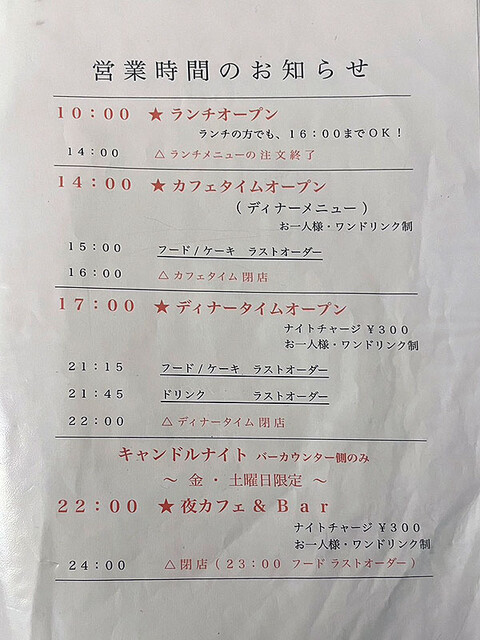 営業時間のお知らせ
10：00 ★ ランチオープン
ランチの方でも、16：00までOK！
14：00 △ ランチメニューの注文終了
14：00 ★ カフェタイムオープン
（ディナーメニュー）
お一人様・ワンドリンク制
15：00 フード / ケーキ ラストオーダー
16：00 △ カフェタイム閉店
17：00 ★ ディナータイムオープン
ナイトチャージ ￥300
お一人様・ワンドリンク制
21：15 フード / ケーキ ラストオーダー
21：45 ドリンク ラストオーダー
22：00 △ ディナータイム閉店
キャンドルナイト バーカウンター側のみ
～ 金 ・ 土曜日限定 ～
22：00 ★ 夜カフェ & Bar
ナイトチャージ ￥300
お一人様・ワンドリンク制
24：00 △ 閉店（23：00 フードラストオーダー）